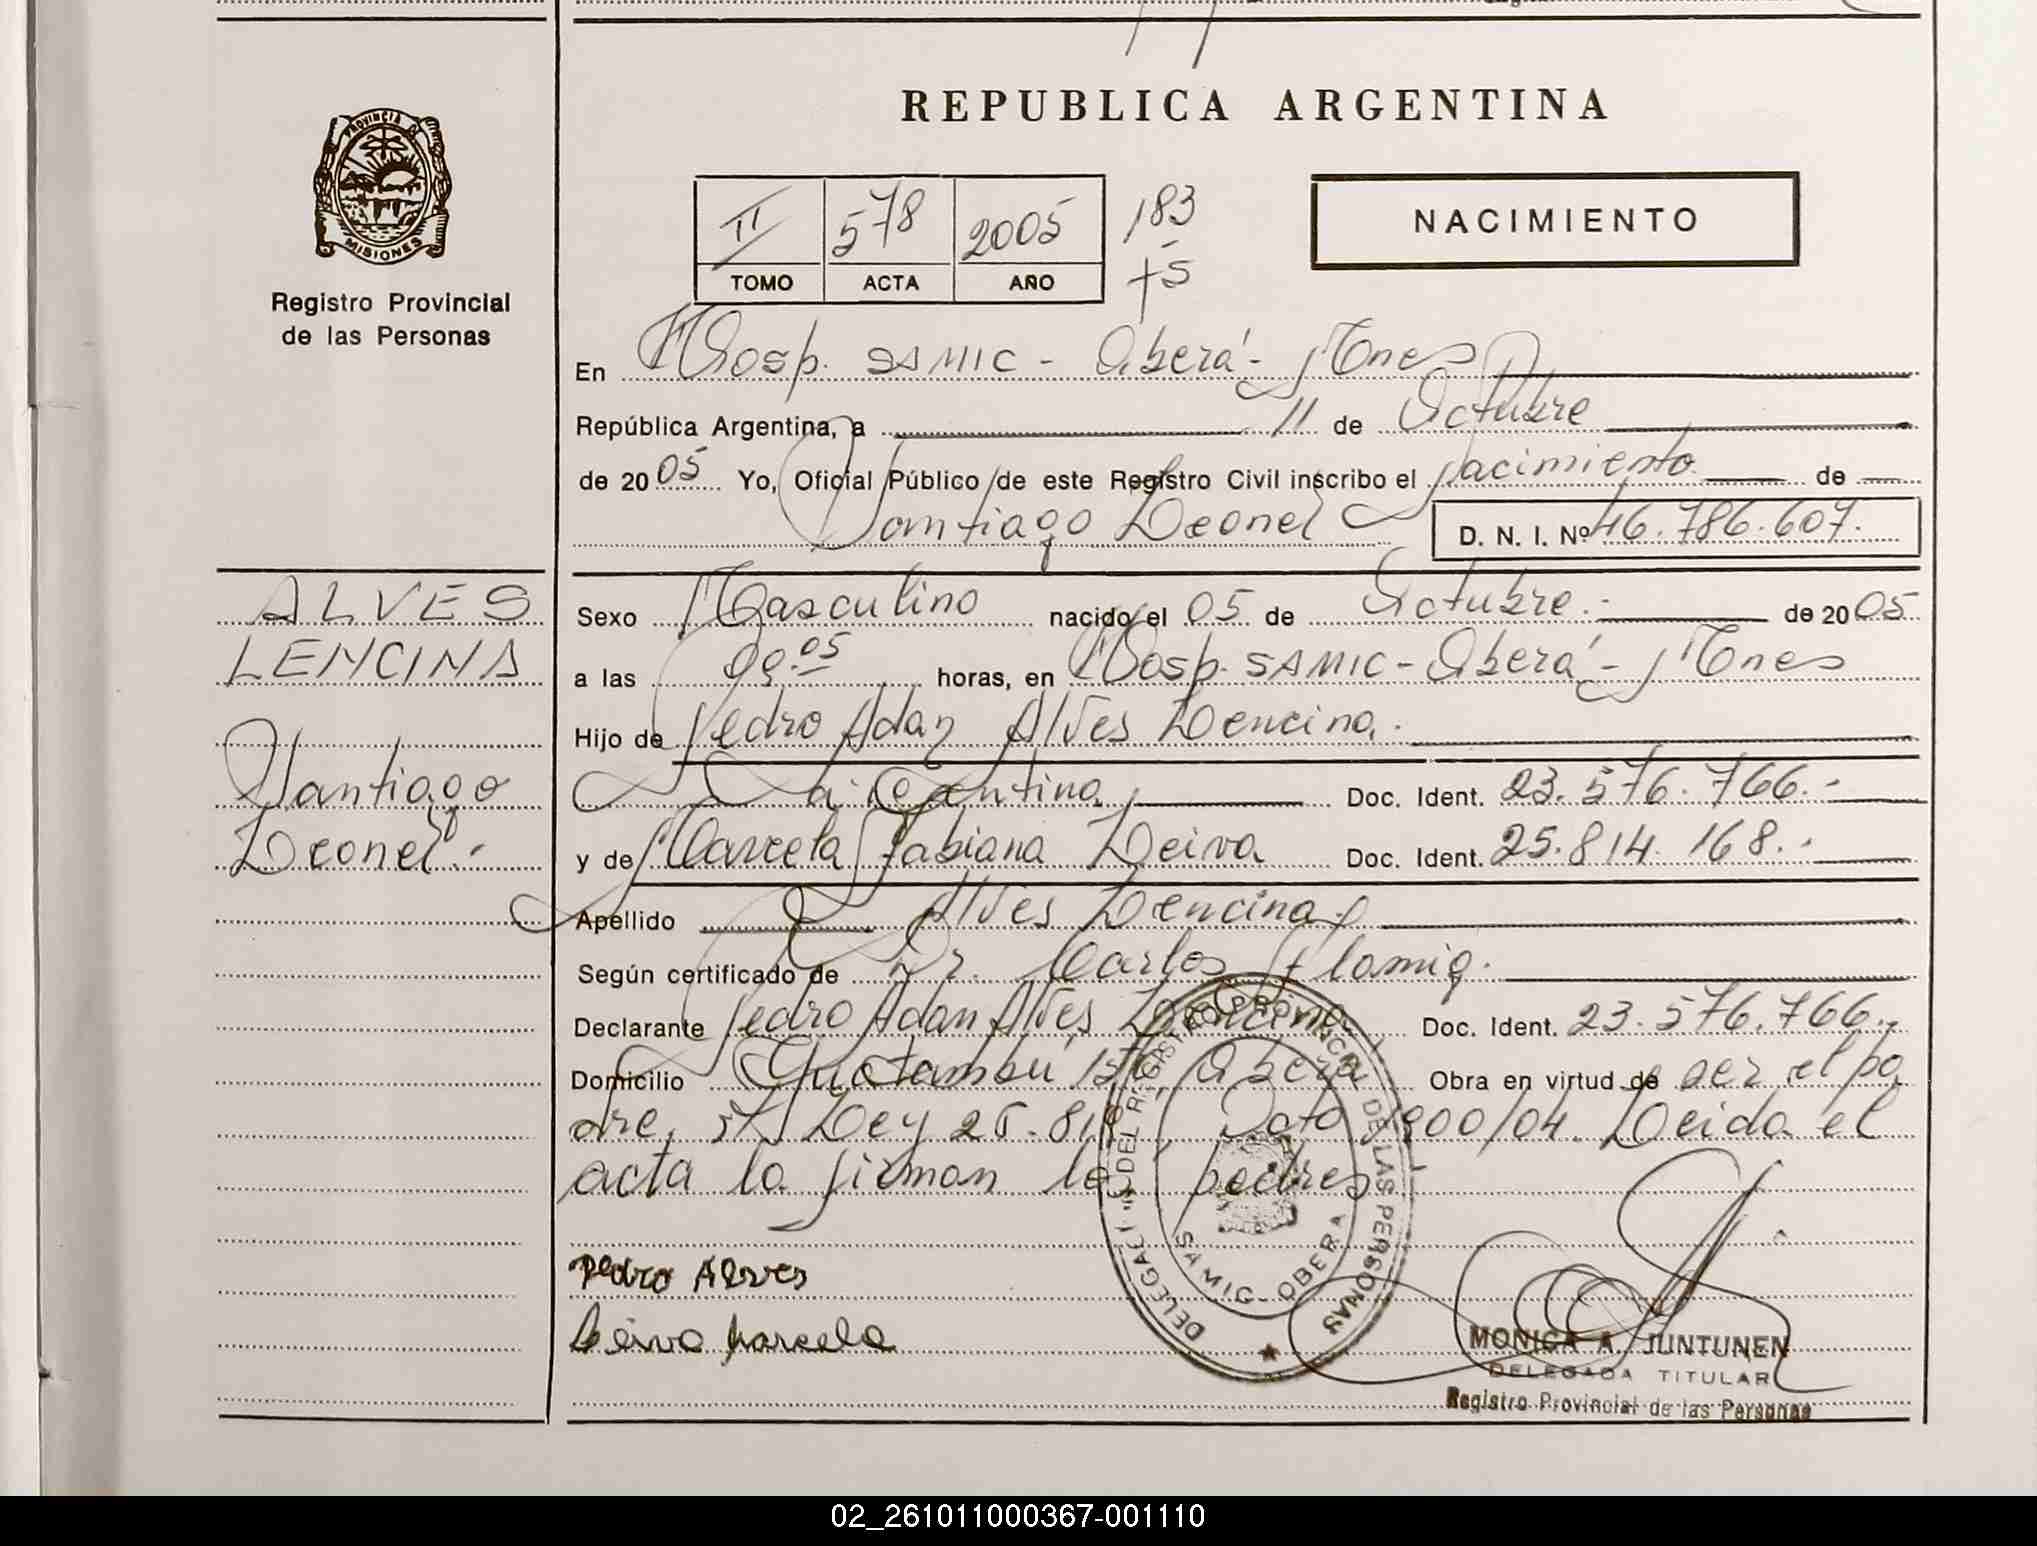 REPUBLICA ARGENTINA
PROVINCIA DE
MISIONES
Registro Provincial
de las Personas
II 578 2005 183
TOMO ACTA AÑO +5
NACIMIENTO
En Hosp. SAMIC - Oberá - Mnes
República Argentina, a 11 de Octubre
de 2005 Yo, Oficial Público de este Registro Civil inscribo el Nacimiento de
Santiago Leonel D. N. I. Nº 46.786.607.
ALVES
LENCINA
Santiago
Leonel.-
Sexo Masculino nacido el 05 de Octubre.- de 2005
a las 09.05 horas, en Hosp. SAMIC - Oberá - Mnes
Hijo de Pedro Adan Alves Lencina.
Argentina Doc. Ident. 23.576.766.-
y de Marcela Fabiana Leiva Doc. Ident. 25.814.168.-
Apellido Alves Lencina.
Según certificado de Dr. Carlos Flamig.
Declarante Pedro Adan Alves Lencina Doc. Ident. 23.576.766.-
Domicilio Guatambú Oberá Obra en virtud de ser el pa
dre. Ley 25.819 Dcto 1900/04. Leida el
acta la firman los padres
Pedro Alves
Leiva Marcela
DELEGACION DEL REGISTRO PROVINCIAL DE LAS PERSONAS
SAMIC - OBERA
MONICA A. JUNTUNEN
DELEGADA TITULAR
Registro Provincial de las Personas
02_261011000367-001110